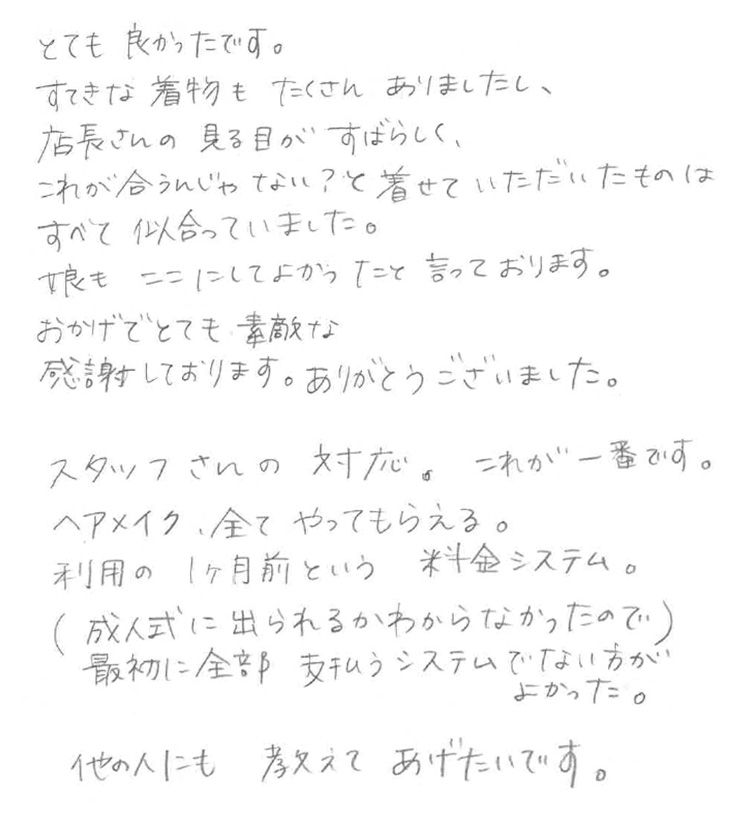 とても 良かったです。
すてきな 着物も たくさん ありましたし、
店長さんの 見る目が すばらしく、
これが合うんじゃ ない?と 着せて いただいたものは
すべて 似合っていました。
娘も ここにしてよかったと 言っております。
おかげでとても 素敵な
感謝しております。ありがとうございました。
スタッフさんの 対応。これが一番です。
ヘアメイク、全て やってもらえる。
利用の 1ヶ月前という 料金システム。
(成人式に出られるかわからなかったので)
最初に全部 支払うシステムでない方が
よかった。
他の人にも 教えて あげたいです。